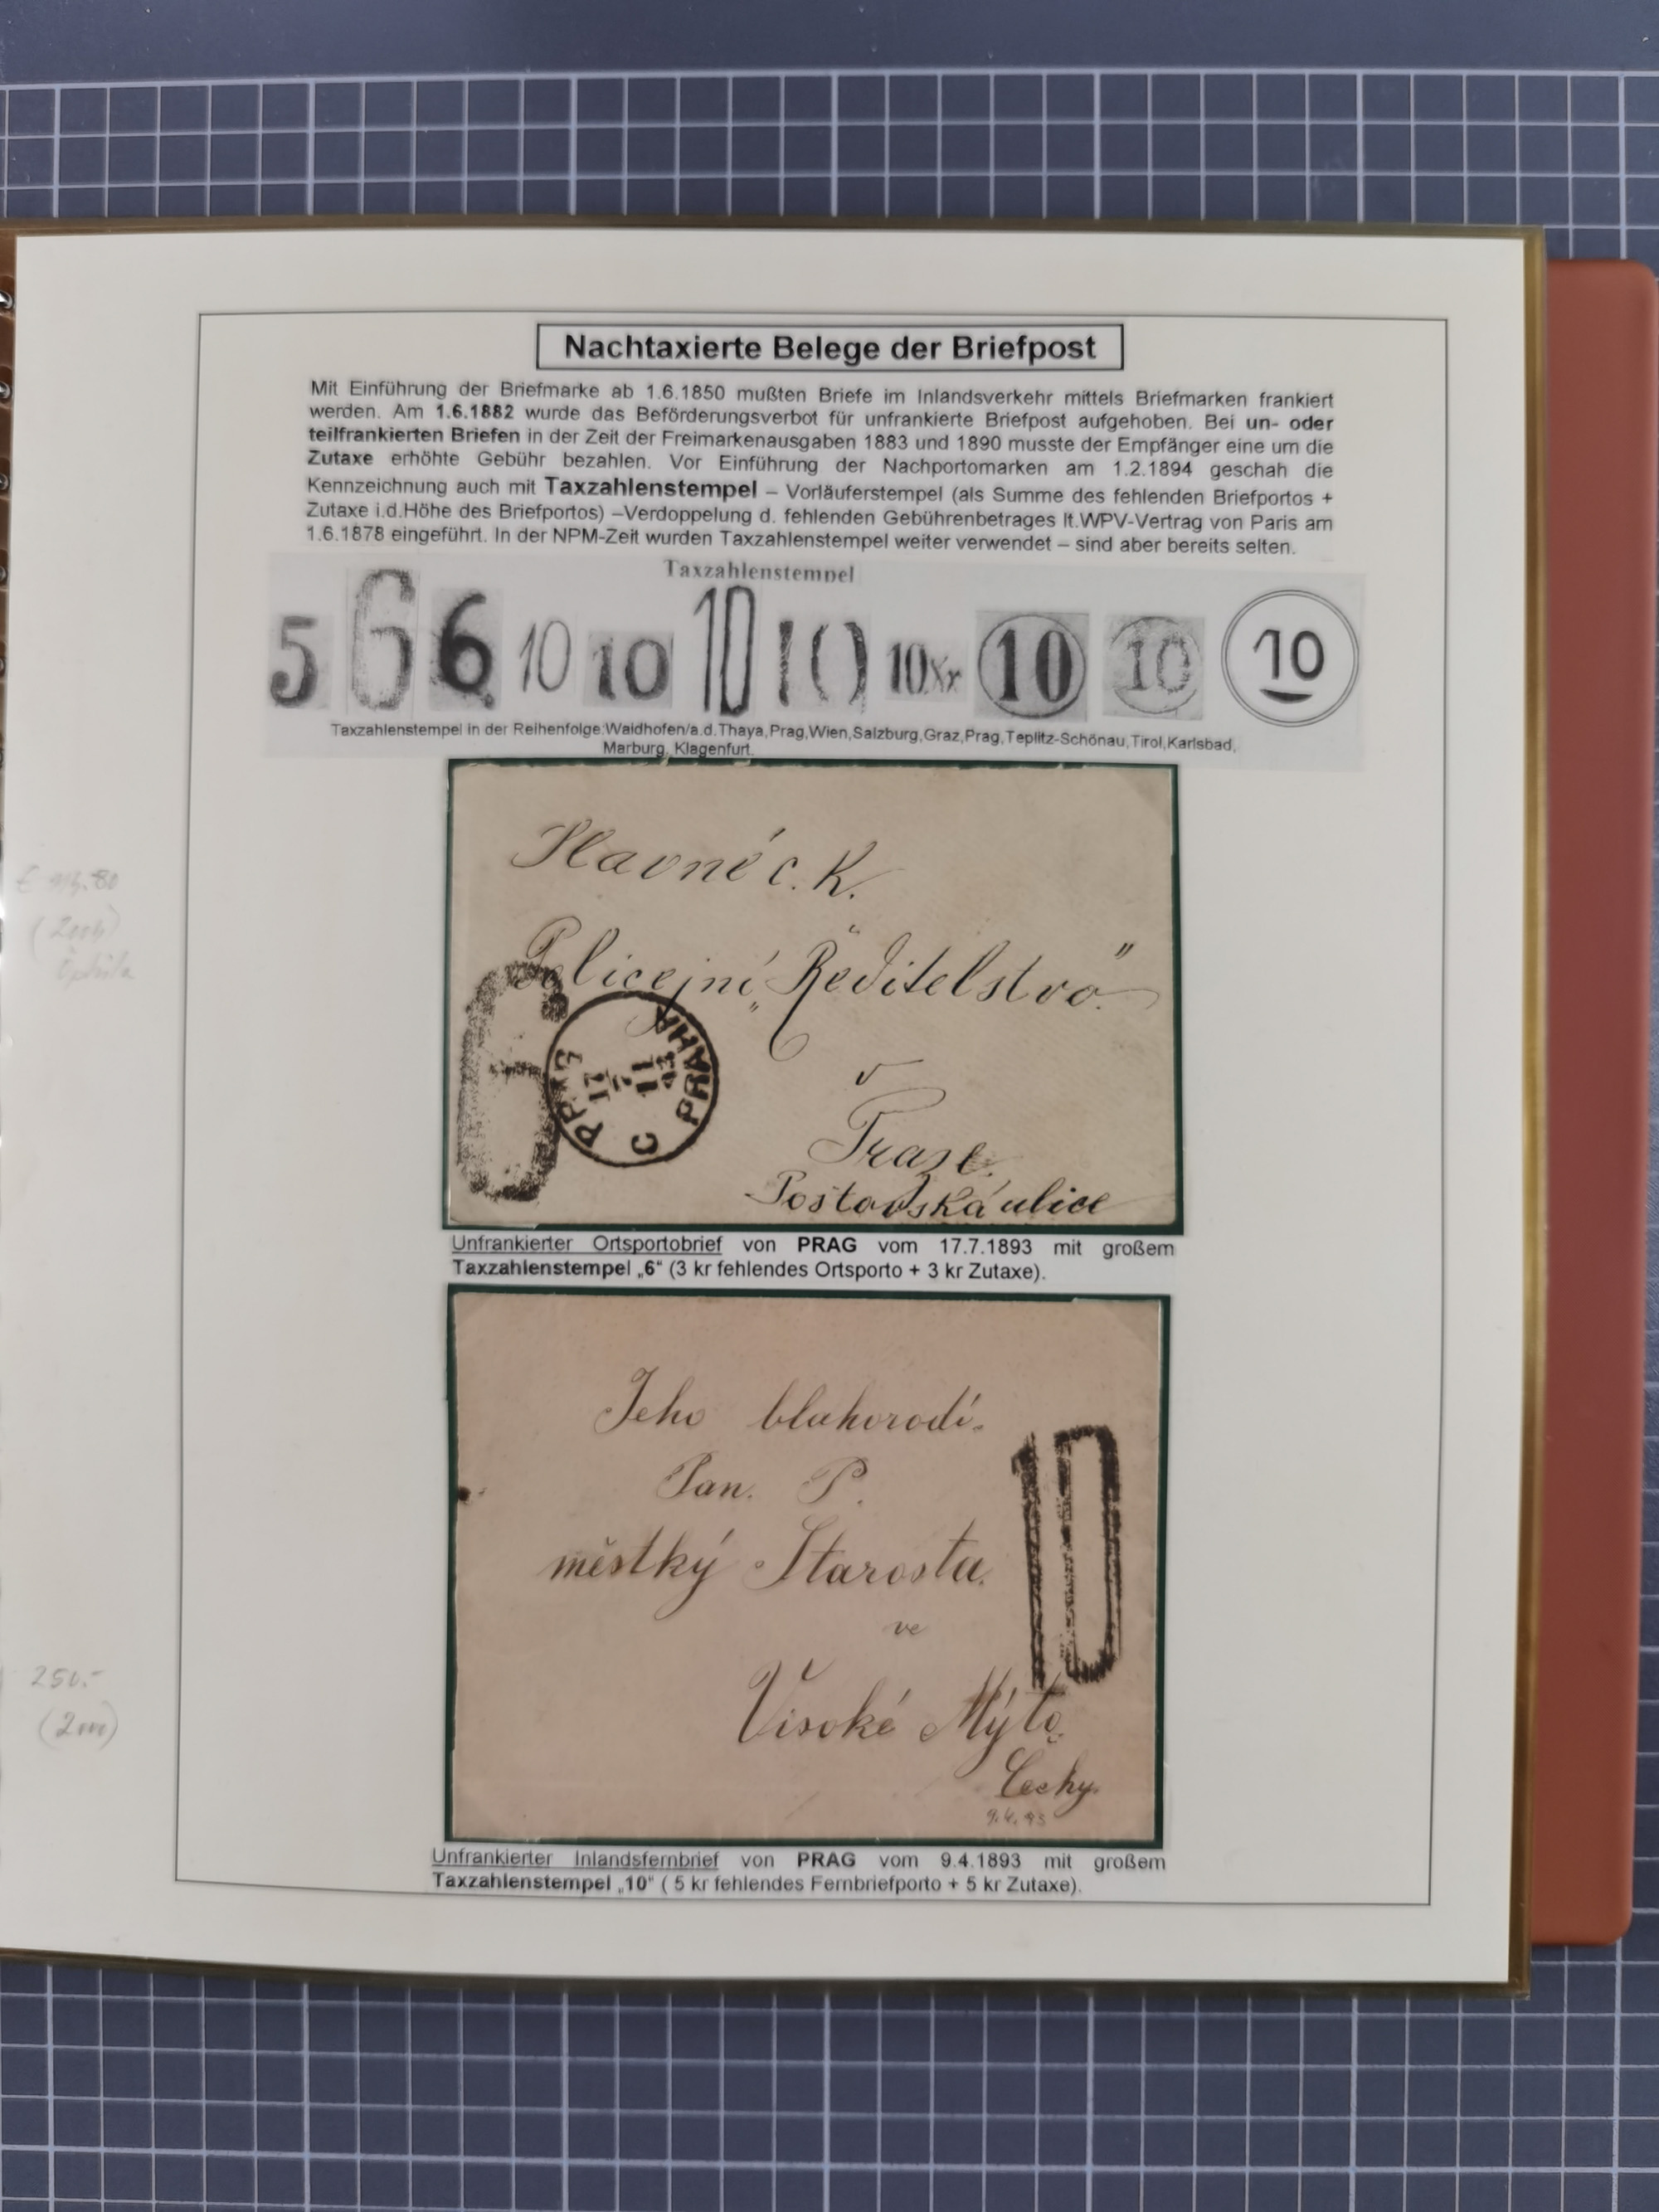 Nachtaxierte Belege der Briefpost
Mit Einführung der Briefmarke ab 1.6.1850 mußten Briefe im Inlandsverkehr mittels Briefmarken frankiert
werden. Am 1.6.1882 wurde das Beförderungsverbot für unfrankierte Briefpost aufgehoben. Bei un- oder
teilfrankierten Briefen in der Zeit der Freimarkenausgaben 1883 und 1890 musste der Empfänger eine um die
Zutaxe erhöhte Gebühr bezahlen. Vor Einführung der Nachportomarken am 1.2.1894 geschah die
Kennzeichnung auch mit Taxzahlenstempel – Vorläuferstempel (als Summe des fehlenden Briefportos +
Zutaxe i.d.Höhe des Briefportos) –Verdoppelung d. fehlenden Gebührenbetrages lt.WPV-Vertrag von Paris am
1.6.1878 eingeführt. In der NPM-Zeit wurden Taxzahlenstempel weiter verwendet – sind aber bereits selten.
Taxzahlenstempel
5 6 6 10 10 10 10 10Xr 10 10 10
Taxzahlenstempel in der Reihenfolge:Waidhofen/a.d.Thaya,Prag,Wien,Salzburg,Graz,Prag,Teplitz-Schönau,Tirol,Karlsbad,
Marburg, Klagenfurt.
Slavné c. K.
Policejní „Ředitelstvo"
v
Praze
Poštovská ulice
6
PRAG
17
7
11
93
C PRAHA
Unfrankierter Ortsportobrief von PRAG vom 17.7.1893 mit großem
Taxzahlenstempel „6“ (3 kr fehlendes Ortsporto + 3 kr Zutaxe).
Jeho blahorodí.
Pan. P.
městký Starosta.
ve
Visoké Mýto
Čechy.
9.4.93
10
Unfrankierter Inlandsfernbrief von PRAG vom 9.4.1893 mit großem
Taxzahlenstempel „10“ ( 5 kr fehlendes Fernbriefporto + 5 kr Zutaxe).
250.-